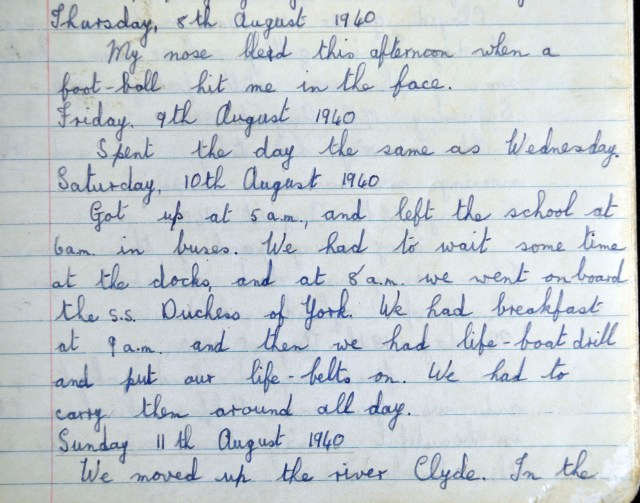 Thursday, 8th August 1940
My nose bled this afternoon when a
foot-ball hit me in the face.
Friday. 9th August 1940
Spent the day the same as Wednesday.
Saturday, 10th August 1940
Got up at 5 a.m., and left the school at
6am. in buses. We had to wait some time
at the docks, and at 8 a.m. we went onboard
the s.s. Duchess of York. We had breakfast
at 9 a.m. and then we had life-boat drill
and put our life-belts on. We had to
carry them around all day.
Sunday 11th August 1940
We moved up the river Clyde. In the